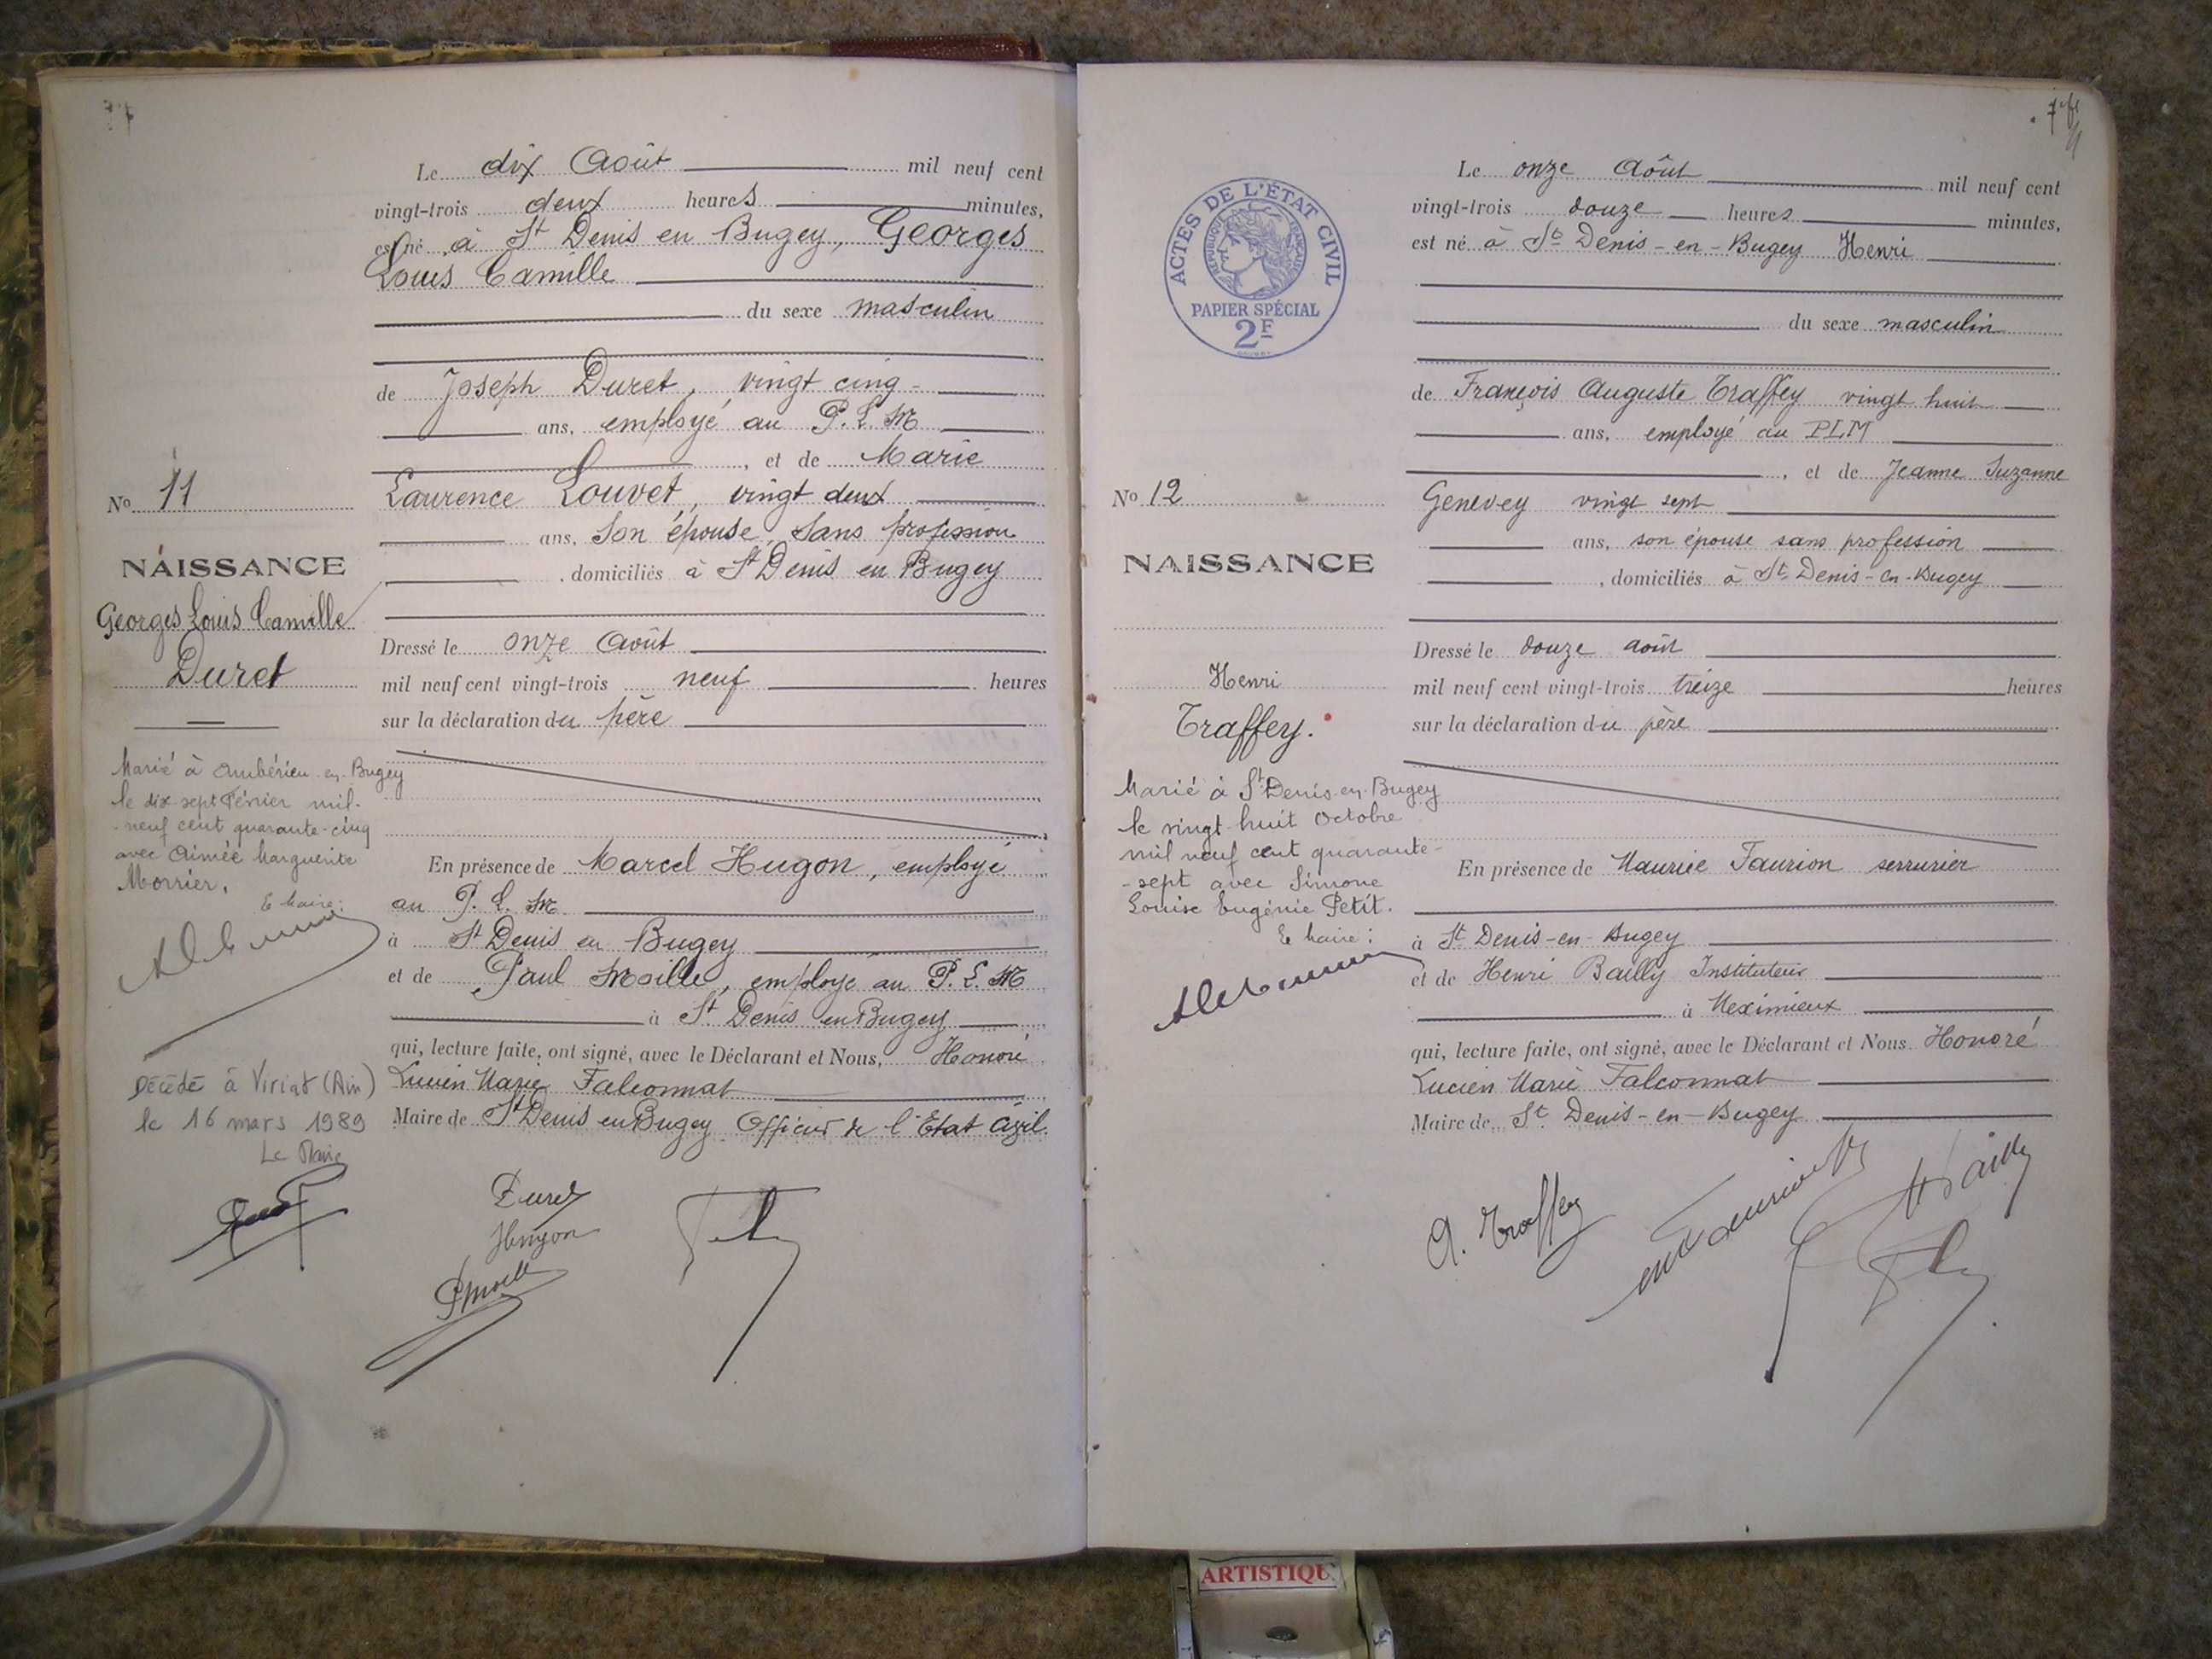 Le dix Août mil neuf cent
vingt-trois deux heures minutes,
est né à St Denis en Bugey, Georges
Louis Camille
du sexe masculin
de Joseph Duret, vingt cinq
ans, employé au P.L.M
, et de Marie
Laurence Louvet, vingt deux
ans, son épouse, sans profession
, domiciliés à St Denis en Bugey
Dressé le onze Août
mil neuf cent vingt-trois neuf heures
sur la déclaration du père
En présence de Marcel Hugon, employé
au P.L.M
à St Denis en Bugey
et de Paul Moille, employé au P.L.M
à St Denis en Bugey
qui, lecture faite, ont signé, avec le Déclarant et Nous, Honoré
Lucien Marie Falconnat
Maire de St Denis en Bugey Officier de l'Etat Civil.
Duret
Hugon
PMoille
No 11
NAISSANCE
Georges Louis Camille
Duret
Marié à Ambérieu-en-Bugey
le dix-sept Février mil-
-neuf cent quarante-cinq
avec Aimée Marguerite
Morrier.
Le Maire:
Décédé à Viriat (Ain)
le 16 mars 1989
Le Maire
7
ACTES DE L'ÉTAT CIVIL
RÉPUBLIQUE FRANÇAISE
PAPIER SPÉCIAL
2F
Le onze Août mil neuf cent
vingt-trois douze heures minutes,
est né à St Denis-en-Bugey Henri
du sexe masculin
de François Auguste Traffey vingt huit
ans, employé au PLM
, et de Jeanne Suzanne
Genevey vingt sept
ans, son épouse sans profession
, domiciliés à St Denis-en-Bugey
Dressé le douze août
mil neuf cent vingt-trois treize heures
sur la déclaration du père
En présence de Maurice Faurion serrurier
à St Denis-en-Bugey
et de Henri Bailly Instituteur
à Meximieux
qui, lecture faite, ont signé, avec le Déclarant et Nous Honoré
Lucien Marie Falconnat
Maire de St Denis-en-Bugey
A. Traffey
HBailly
No 12
NAISSANCE
Henri
Traffey.
Marié à St Denis-en-Bugey
le vingt-huit Octobre
mil neuf cent quarante-
-sept avec Simone
Louise Eugénie Petit.
Le Maire:
ARTISTIQU